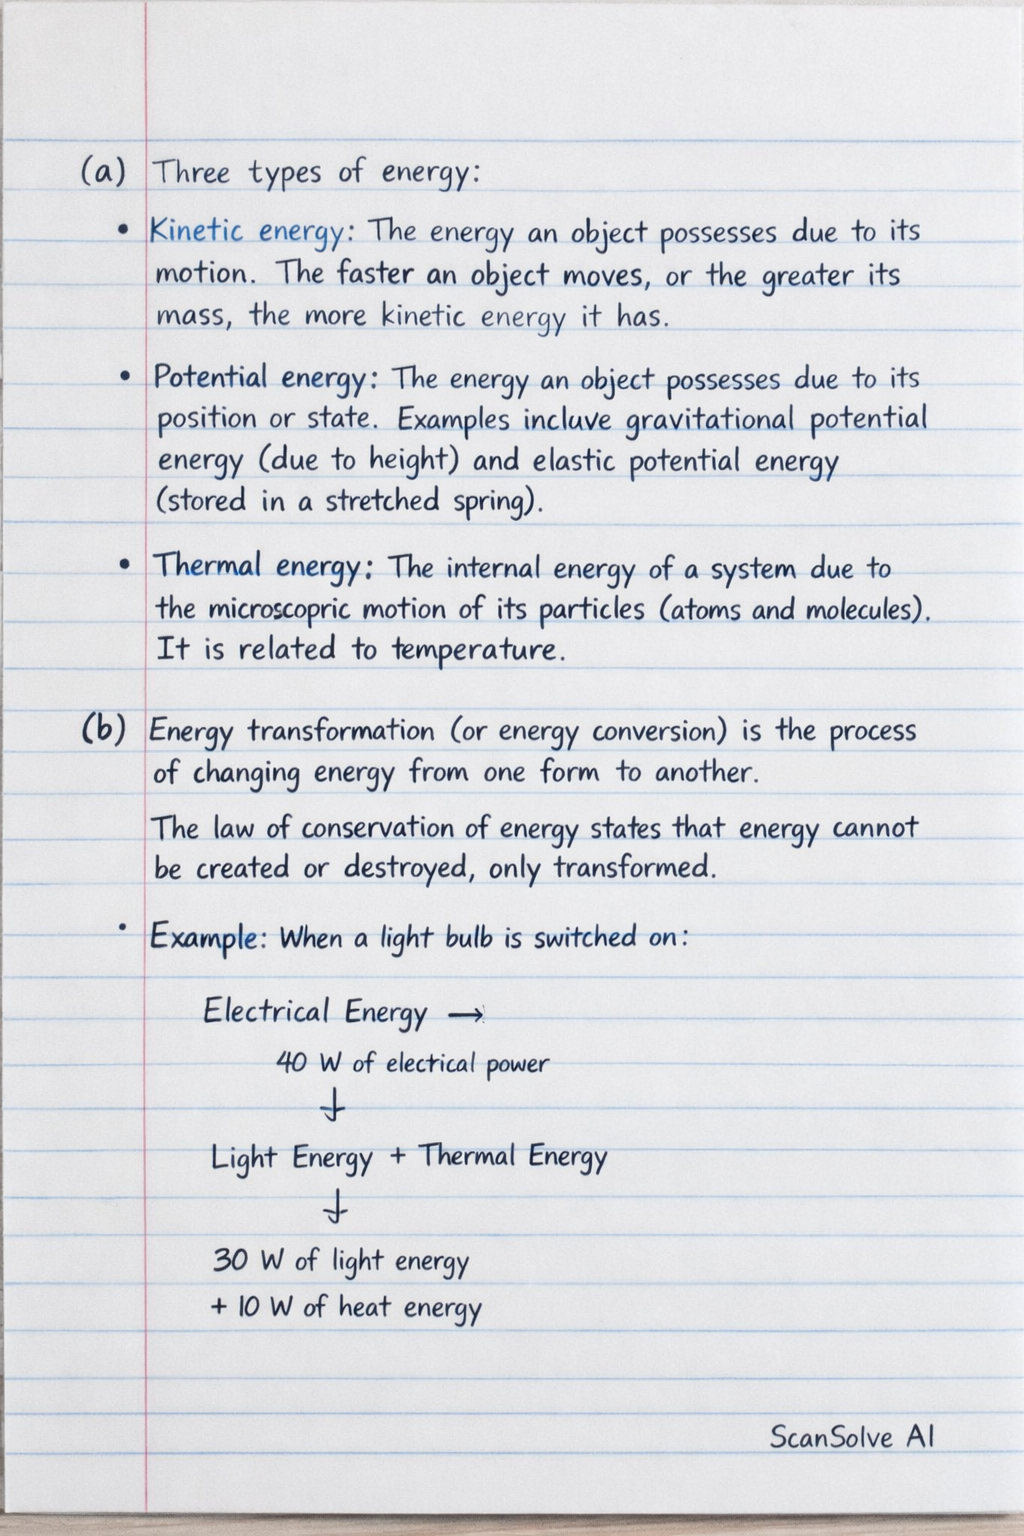 (a) Three types of energy:
• Kinetic energy: The energy an object possesses due to its
motion. The faster an object moves, or the greater its
mass, the more kinetic energy it has.
• Potential energy: The energy an object possesses due to its
position or state. Examples incluve gravitational potential
energy (due to height) and elastic potential energy
(stored in a stretched spring).
• Thermal energy: The internal energy of a system due to
the microscopric motion of its particles (atoms and molecules).
It is related to temperature.
(b) Energy transformation (or energy conversion) is the process
of changing energy from one form to another.
The law of conservation of energy states that energy cannot
be created or destroyed, only transformed.
• Example: When a light bulb is switched on:
Electrical Energy →
40 W of electrical power
↓
Light Energy + Thermal Energy
↓
30 W of light energy
+ 10 W of heat energy
ScanSolve AI